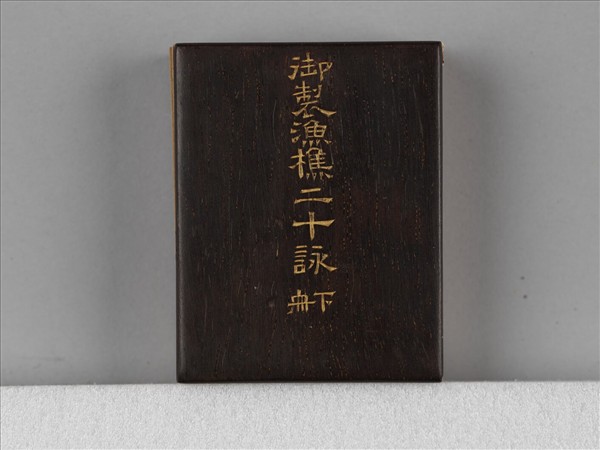 御製漁樵二十詠
下冊